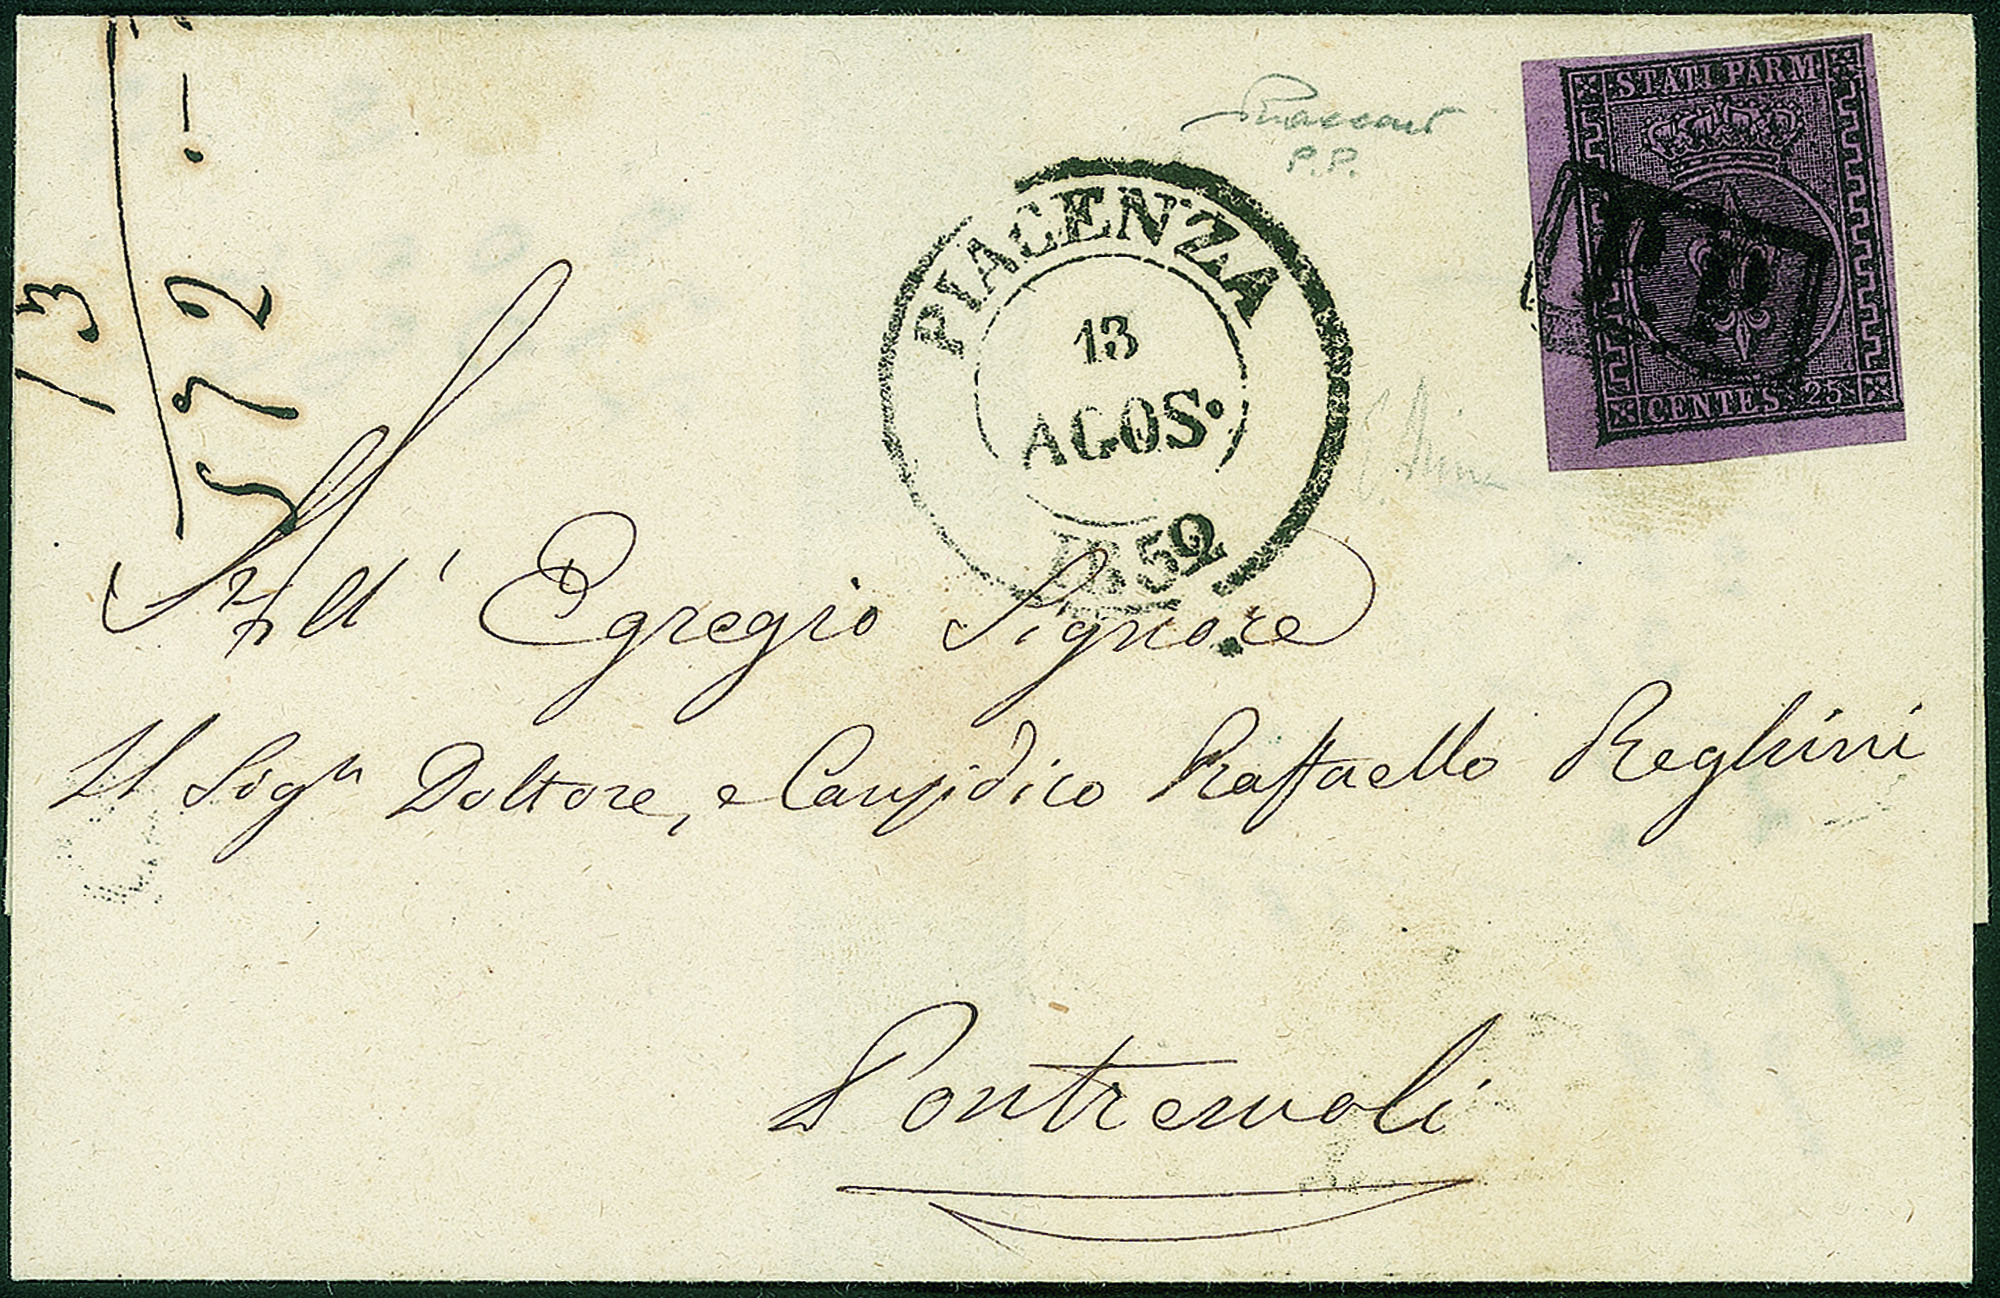 STATI PARM
CENTES. 25
P.P.
PIACENZA
13
AGOS.
1852
13
572
All' Egregio Signore
Il Sigr Dottore, e Causidico Raffaello Reghini
Pontremoli